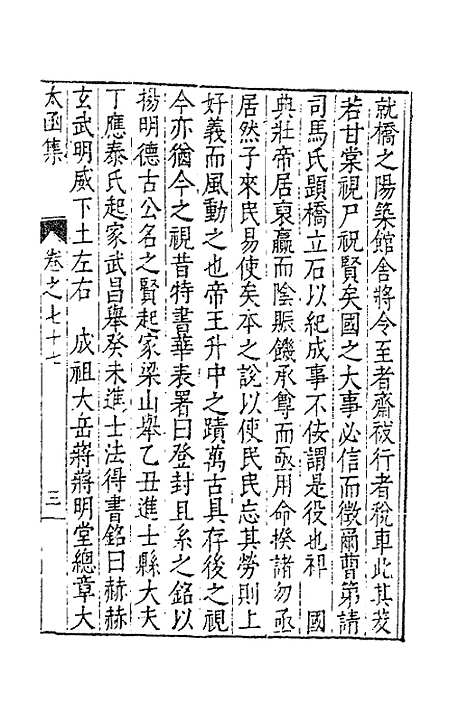 就橋之陽築館舍將令至者齋祓行者稅車此其茇
若甘棠視尸祝賢矣國之大事必信而徵爾曹第請
司馬氏顕橋立石以紀成事不佞謂是役也祁　國
典壯帝居裒羸而陰賑饑承尊而亟用命揆諸勿亟
居然子來民易使矣本之說以使民民忘其勞則上
好義而風動之也帝王升中之蹟萬古具存後之視
今亦猶今之視昔特書華表署曰登封且系之銘以
揚明德古公名之賢起家梁山舉乙丑進士縣大夫
丁應泰氏起家武昌舉癸未進士法得書銘曰赫赫
玄武明威下土左右　成祖大岳蔣蔣明堂總章大
太函集
卷之七十七
三